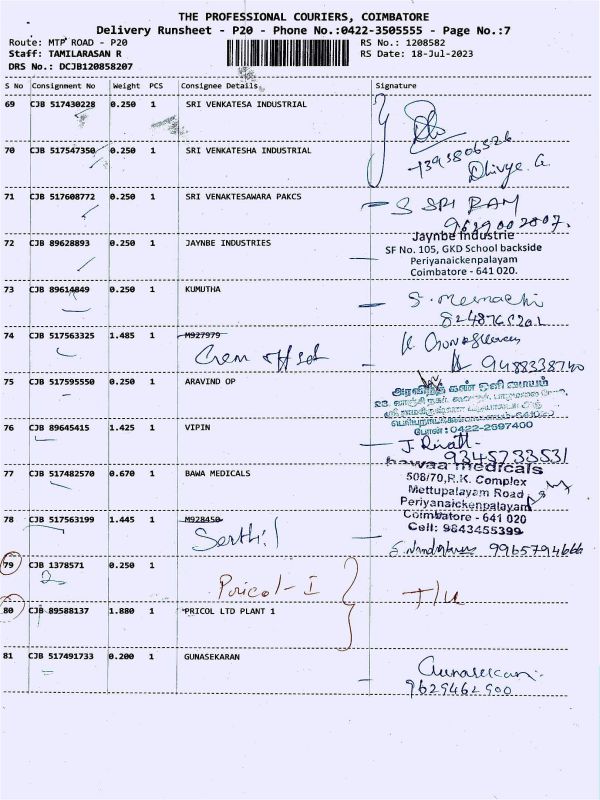 THE PROFESSIONAL COURIERS, COIMBATORE
Delivery Runsheet - P20 - Phone No.:0422-3505555 - Page No.:7
Route: MTP ROAD - P20
RS No.: 1208582
Staff: TAMILARASAN R
RS Date: 18-Jul-2023
DRS No.: DCJB120858207
S No Consignment No Weight PCS Consignee Details Signature
69 CJB 517430228 0.250 1 SRI VENKATESA INDUSTRIAL
70 CJB 517547350 0.250 1 SRI VENKATESHA INDUSTRIAL
Dhivya G.
71 CJB 517608772 0.250 1 SRI VENAKTESAWARA PAKCS
S SRI RAM
9689002007.
72 CJB 89628893 0.250 1 JAYNBE INDUSTRIES
Jaynbe Industrie
SF No. 105, GKD School backside
Periyanaickenpalayam
Coimbatore - 641 020.
73 CJB 89614849 0.250 1 KUMUTHA
S. Meenachi
74 CJB 517563325 1.485 1 M927979
9488338740
75 CJB 517595550 0.250 1 ARAVIND OP
அரவிந்த் கண் ஒளி மையம்
போன்: 0422-2697400
76 CJB 89645415 1.425 1 VIPIN
9345733531
77 CJB 517482570 0.670 1 BAWA MEDICALS
bawaa medicals
508/70,R.K. Complex
Mettupalayam Road
Periyanaickenpalayam
Coimbatore - 641 020
Cell: 9843455399
78 CJB 517563199 1.445 1 M928450
Senthil
9965794666
79 CJB 1378571 0.250 1
Pricol - I
80 CJB 89588137 1.880 1 PRICOL LTD PLANT 1
81 CJB 517491733 0.200 1 GUNASEKARAN
Gunasekaran
9629462900